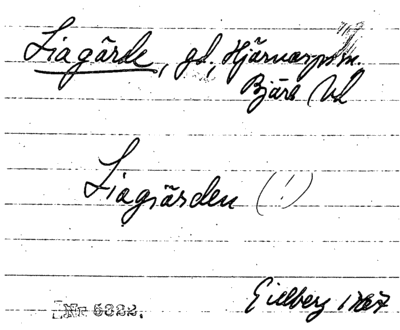 Liagärde, gd, Hjärnarps sn.
Bjäre hd
Liagiärden (!)
Gillberg 1767
Nr 6322.